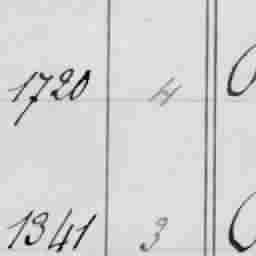 1720 4
1341 3